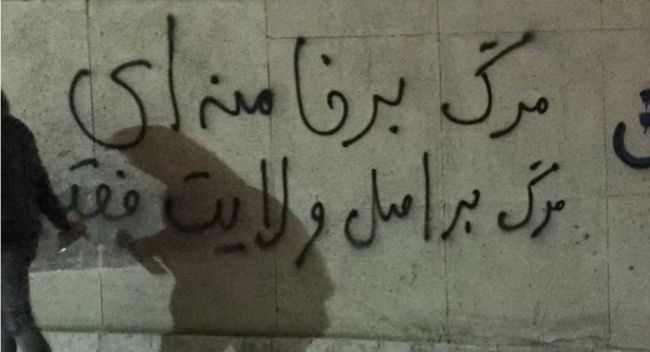 مرگ بر خامنه ای
مرگ بر اصل ولایت فقی